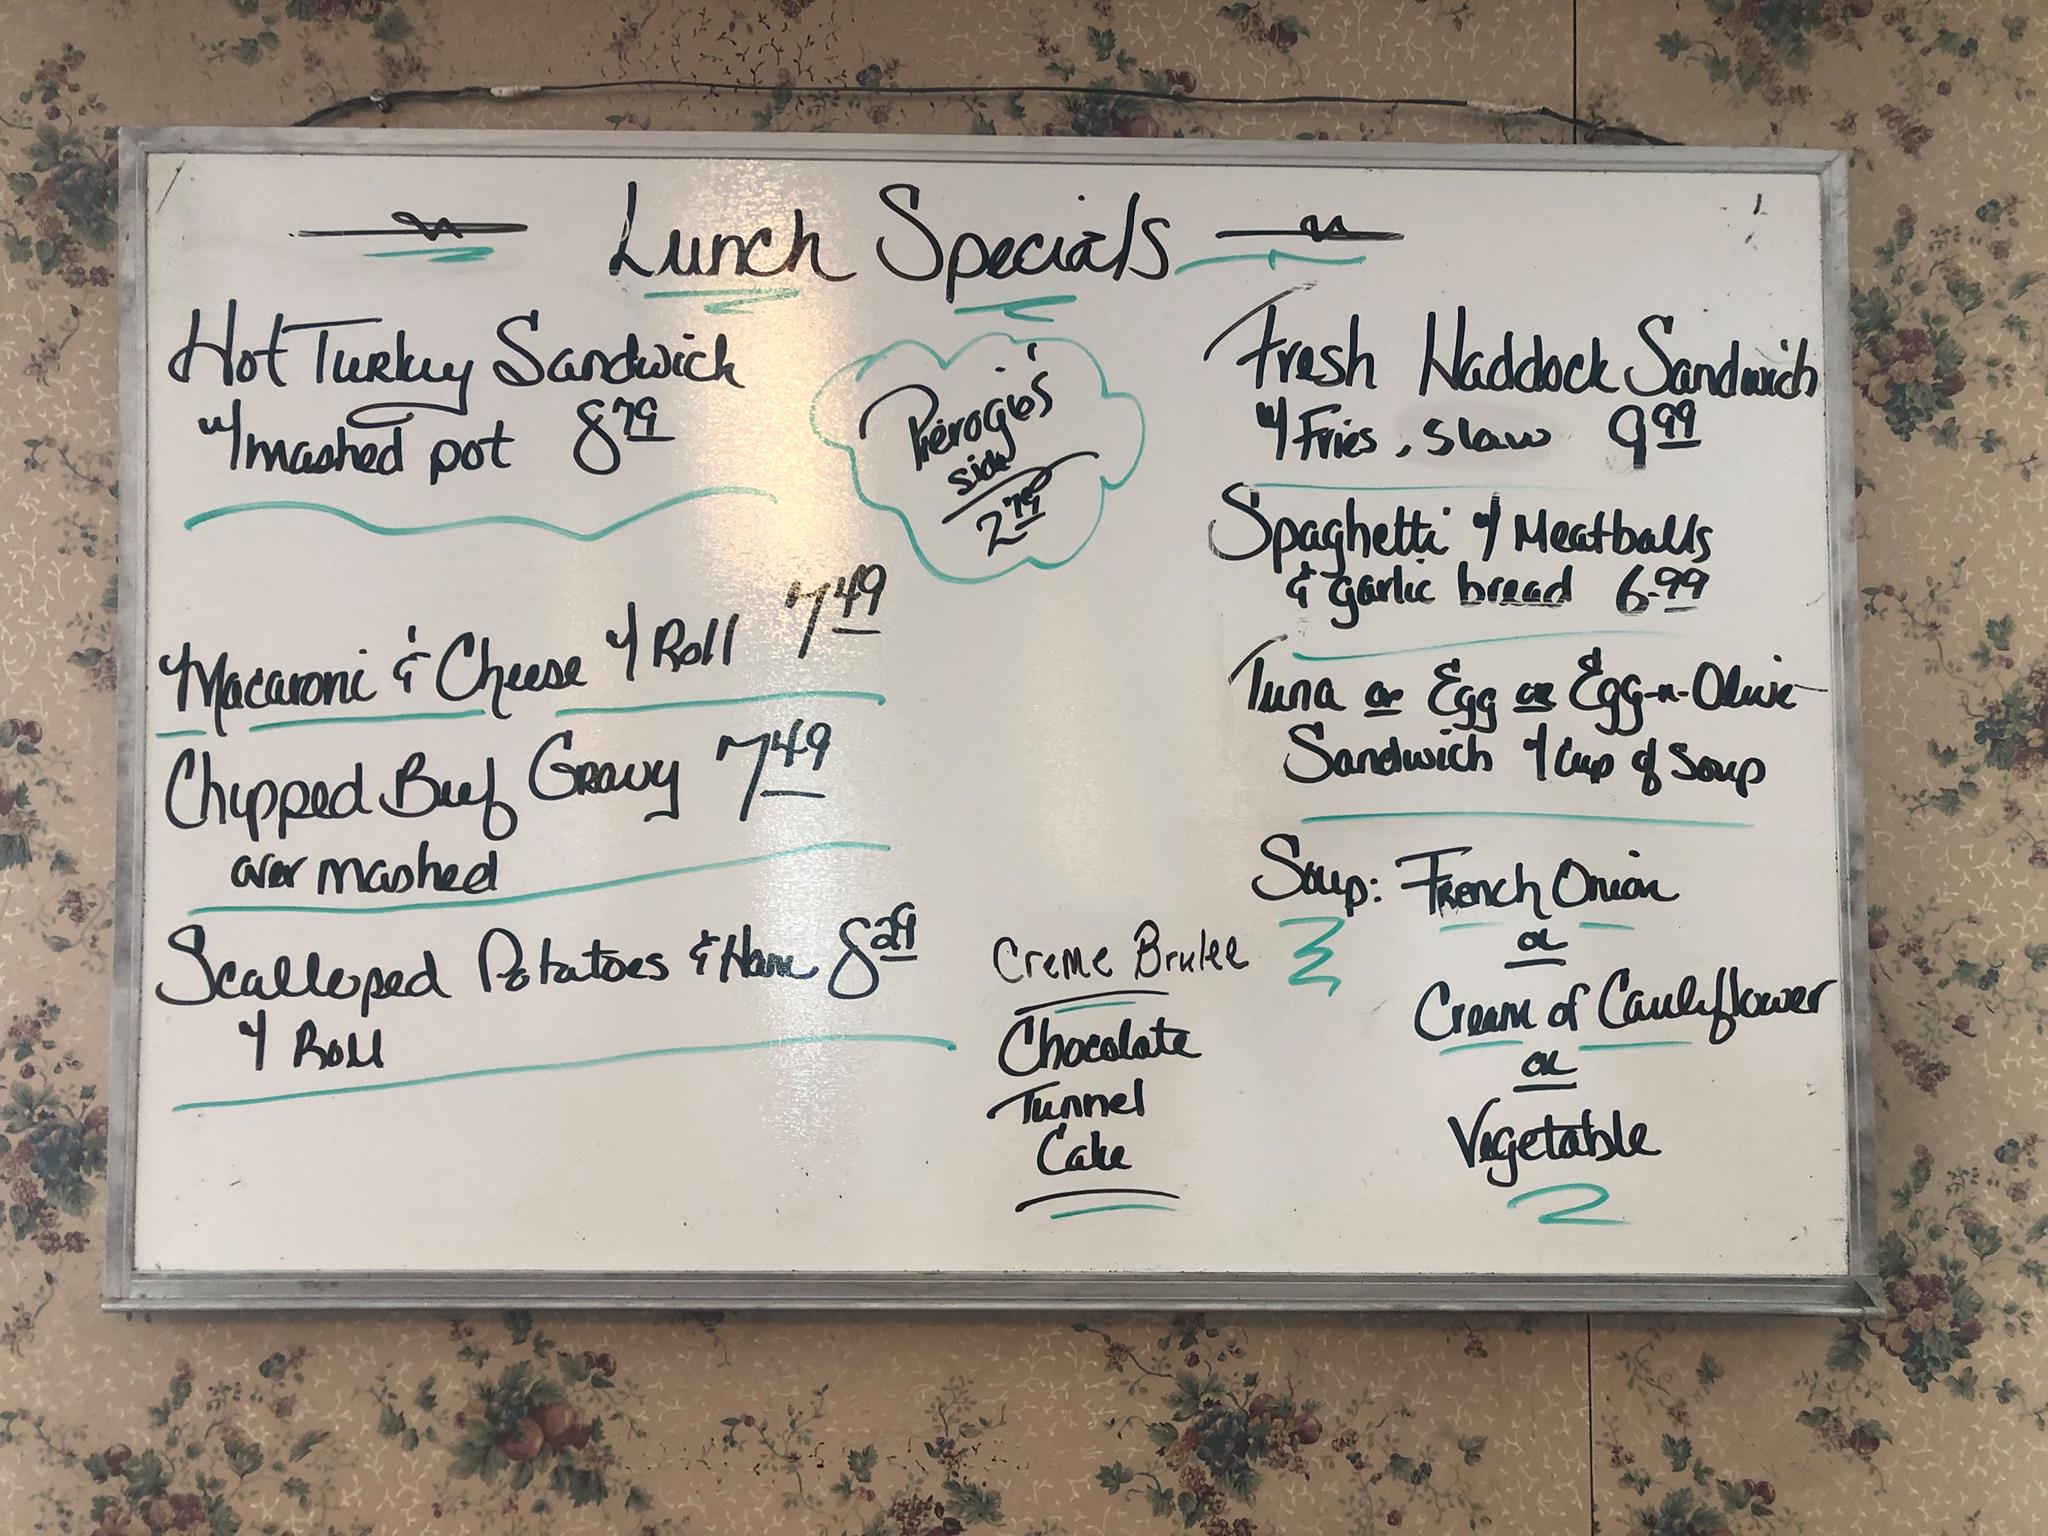 Lunch Specials
Hot Turkey Sandwich
w/ mashed pot 8.79
Macaroni & Cheese w/ Roll 7.49
Chipped Beef Gravy 7.49
over mashed
Scalloped Potatoes & Ham 8.29
w/ Roll
Pierogies'
side
2.79
Creme Brulee
Chocolate
Tunnel
Cake
Fresh Haddock Sandwich
w/ Fries, Slaw 9.99
Spaghetti w/ Meatballs
& garlic bread 6.99
Tuna or Egg or Egg-n-Olive
Sandwich w/ Cup of Soup
Soup: French Onion
or
Cream of Cauliflower
or
Vegetable